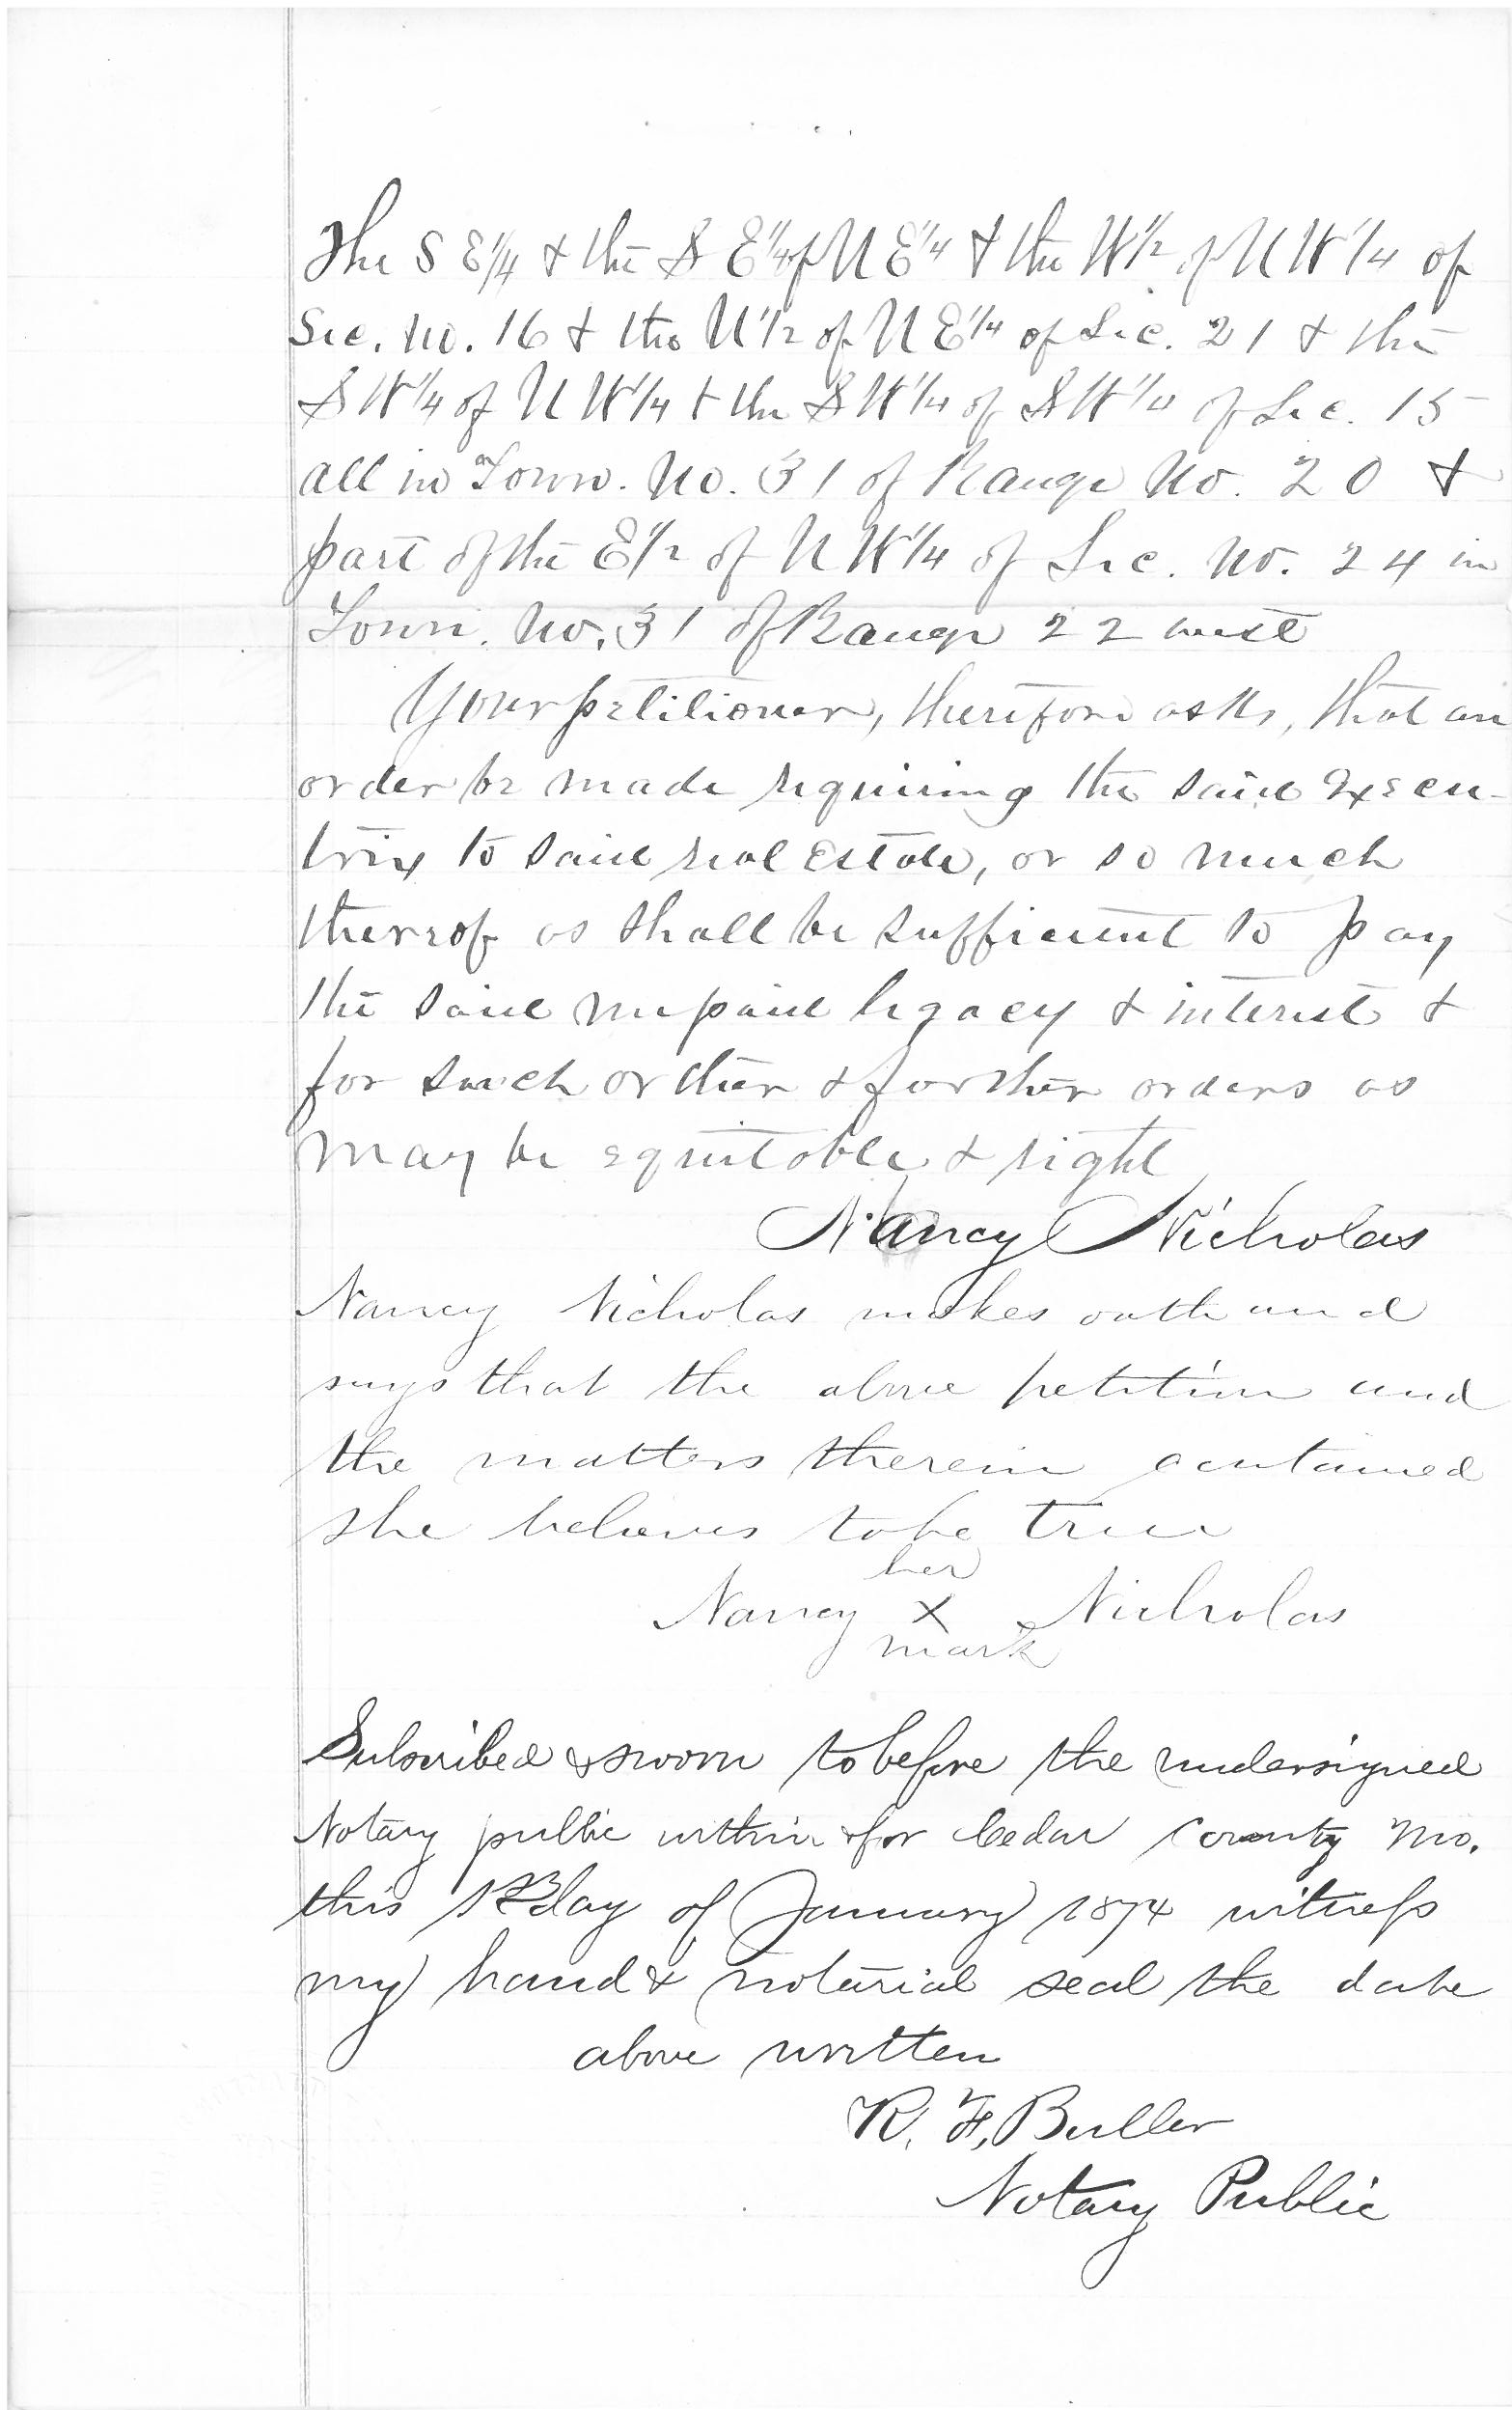 The S E 1/4 & the S E 1/4 of N E 1/4 & the W 1/2 of N W 1/4 of
Sec. No. 16 & the N 1/2 of N E 1/4 of Sec. 21 & the
S W 1/4 of N W 1/4 & the S W 1/4 of S W 1/4 of Sec. 15
all in Town. No. 31 of Range No. 20 &
part of the E 1/2 of N W 1/4 of Sec. No. 24 in
Town. No. 31 of Range 22 west
Your petitioner, therefore asks, that an
order be made requiring the said Execu-
trix to said real Estate, or so much
thereof as shall be sufficient to pay
the said unpaid legacy & interest &
for such orther & forther orders as
may be equitable & right
Nancy Nicholas
Nancy Nicholas makes oath and
says that the above petition and
the matters therein contained
she believes to be true
her
Nancy X Nicholas
mark
Subscribed & sworn to before the undersigned
Notary public within & for Cedar County Mo.
this day of January 1874 witness
my hand & notarial seal the date
above written
R. F. Buller
Notary Public